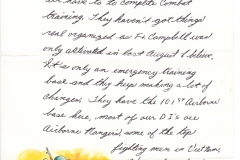 all have to to complete Combat
training. They haven't got things
real organized as Ft Campbell was
only activated in last August I believe.
It's only an emergency training
base and they keep making a lot of
changes. They have the 101st Airborne
base here, most of our D.I's are
Airborne Rangers, some of the top
fighting men in Viet Nam